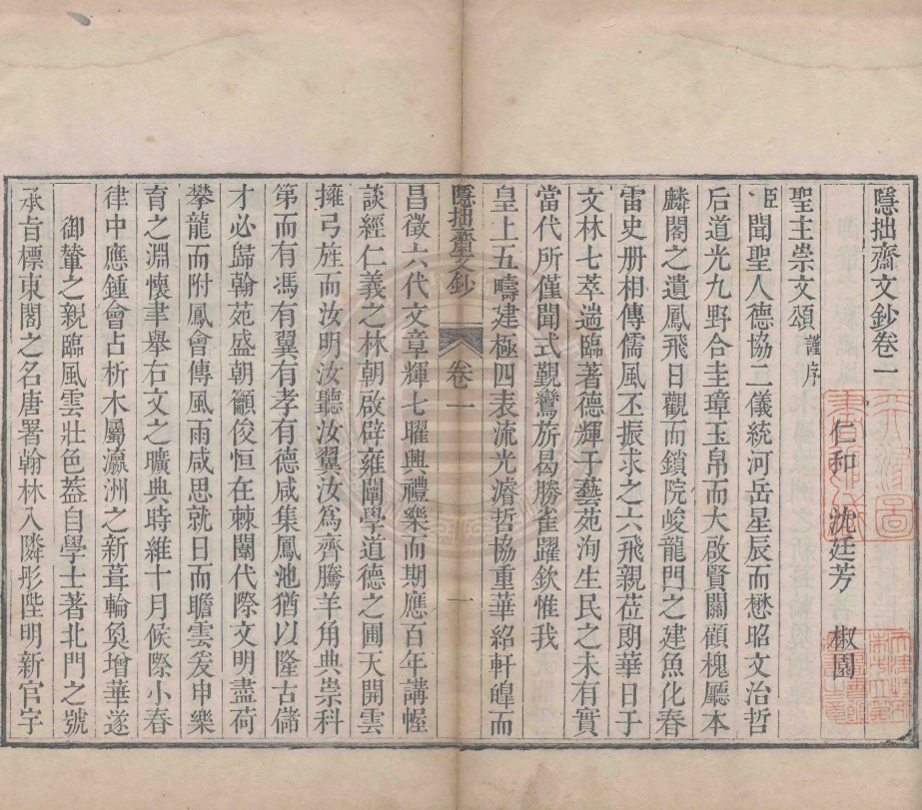 隱拙齋文鈔卷一
仁和 沈廷芳 椒園
聖主崇文頌謹序
臣聞聖人德協二儀統河岳星辰而懋昭文治哲
后道光九野合圭璋玉帛而大啟賢關顧槐廳本
麟閣之遺鳳飛日觀而鎖院峻龍門之建魚化春
雷史册相傳儒風丕振求之六飛親莅朗華日于
文林七萃遄臨著德輝于藝苑洵生民之未有實
當代所僅聞式覲鸞旂曷勝雀躍欽惟我
皇上五疇建極四表流光濬哲協重華紹軒皥而
隱拙齋文鈔 卷一 一
昌徵六代文章輝七曜興禮樂而期應百年講幄
談經仁義之林朝啟辟雍闡學道德之圃天開雲
擁弓旌而汝明汝聽汝翼汝爲齊騰羊角典崇科
第而有馮有翼有孝有德咸集鳳池猶以隆古儲
才必歸翰苑盛朝籲俊恒在棘闈代際文明盡荷
攀龍而附鳳會傳風雨咸思就日而瞻雲爰申樂
育之淵懷聿舉右文之曠典時維十月候際小春
律中應鍾會占析木屬瀛洲之新葺輪奐增華遂
御輦之親臨風雲壯色葢自學士著北門之號
承旨標東閣之名唐署翰林入隣彤陛明新官字